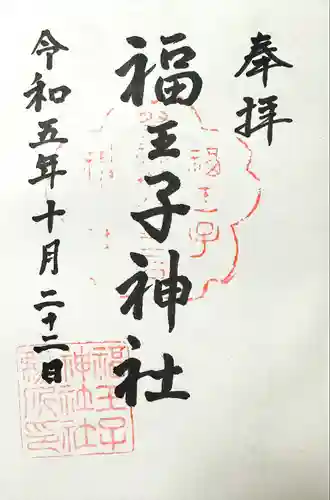 奉拝
福王子神社
令和五年十月二十二日
福王子
神社社